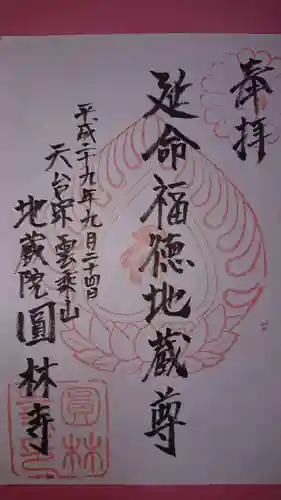 奉拝
延命福徳地蔵尊
平成二十九年九月二十四日
天台宗 雲乗山
地蔵院 圓林寺